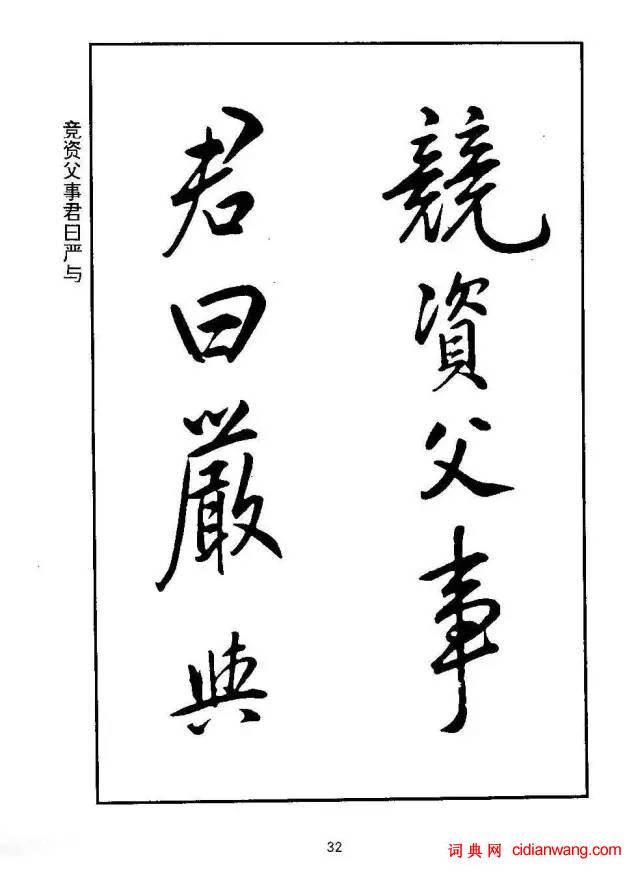 競資父事
君曰嚴與
竞资父事君曰严与
32
词典网 cidianwang.com